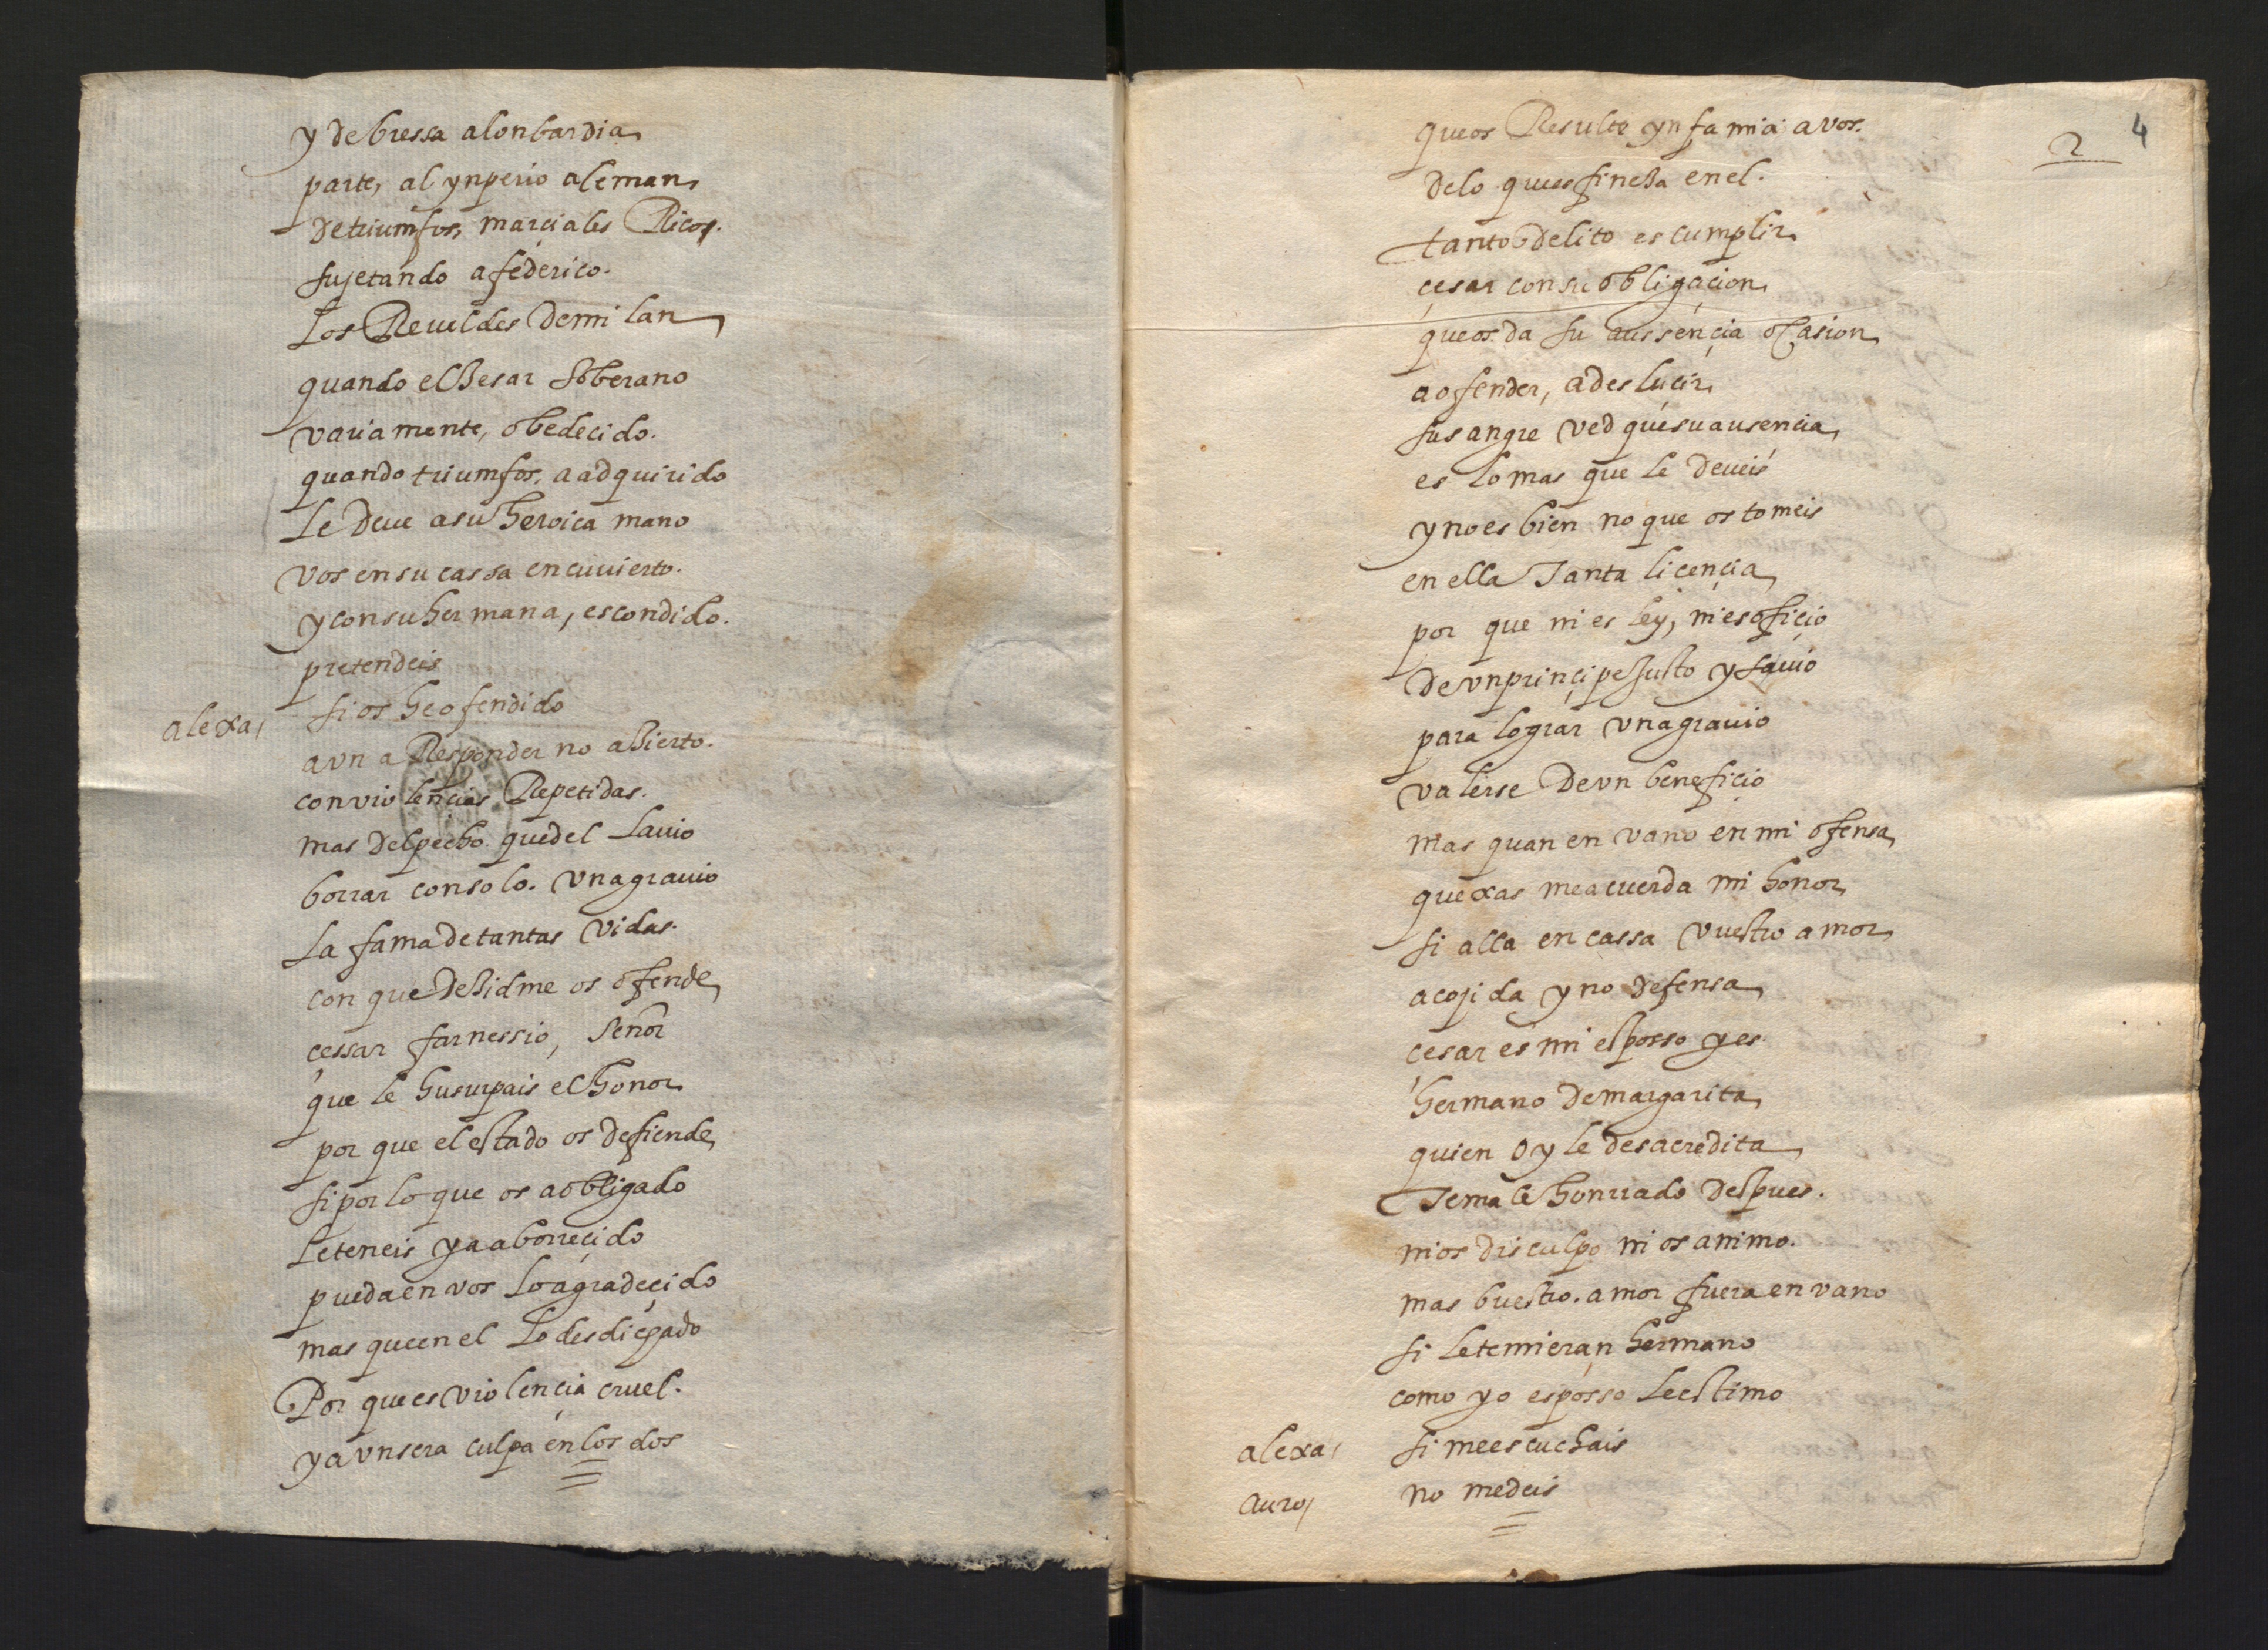 y de bressa a lonbardia
parte, al ynperio aleman
de triumfos, marciales Ricos.
sujetando a féderico.
Los Reueldes de mi lan
quando el Zesar soberano
variamente, obedecido.
quando triumfos. a adquirido
Le deue a su heroica mano
vos en su cassa encuuierto.
y con su hermana, escondido.
pretendeis
alexa, si os he ofendido
avn a Responder no aZierto.
con violençias Repetidas.
mas del pecho que del Lauio
borrar con solo. vn agrauio
La fama de tantas vidas.
con que deZidme os ofende
çessar farnessio, Señor
que le husurpais el honor
por que el estado os defiende
si por lo que os a obligado
Le teneis ya aborreçido
pueda en vos Lo agradeçido
mas que en el Lo desdiçhado
Por que es violençia cruel.
y a vn sera culpa en los dos
2 4
que os Resulte ynfamia a vos.
de lo que es fineZa en el.
tanto delito es cumplir
çesar con su obligaçion
que os da su aussençia ocasion
a ofender, a deslucir
su sangre ved que su ausencia
es lo mas que le deueis
y no es bien no que os tomeis
en ella Tanta liçençia
por que ni es ley, ni es ofiçio
De vn prinçipe Justo y sauio
para lograr vn agrauio
valerse De vn benefiçio
mas quan en vano en mi ofensa
quexas me acuerda mi honor
si alla en cassa vuestro amor
acojida y no defensa
çesar es mi esposso y es
hermano de margarita
quien oy le desacredita
Temale honrrado despues.
ni os disculpo ni os animo.
mas buestro. amor fuera en vano
si le temieran hermano
como yo esposso Le estimo
alexa, si me escuchais
auro, no me deis